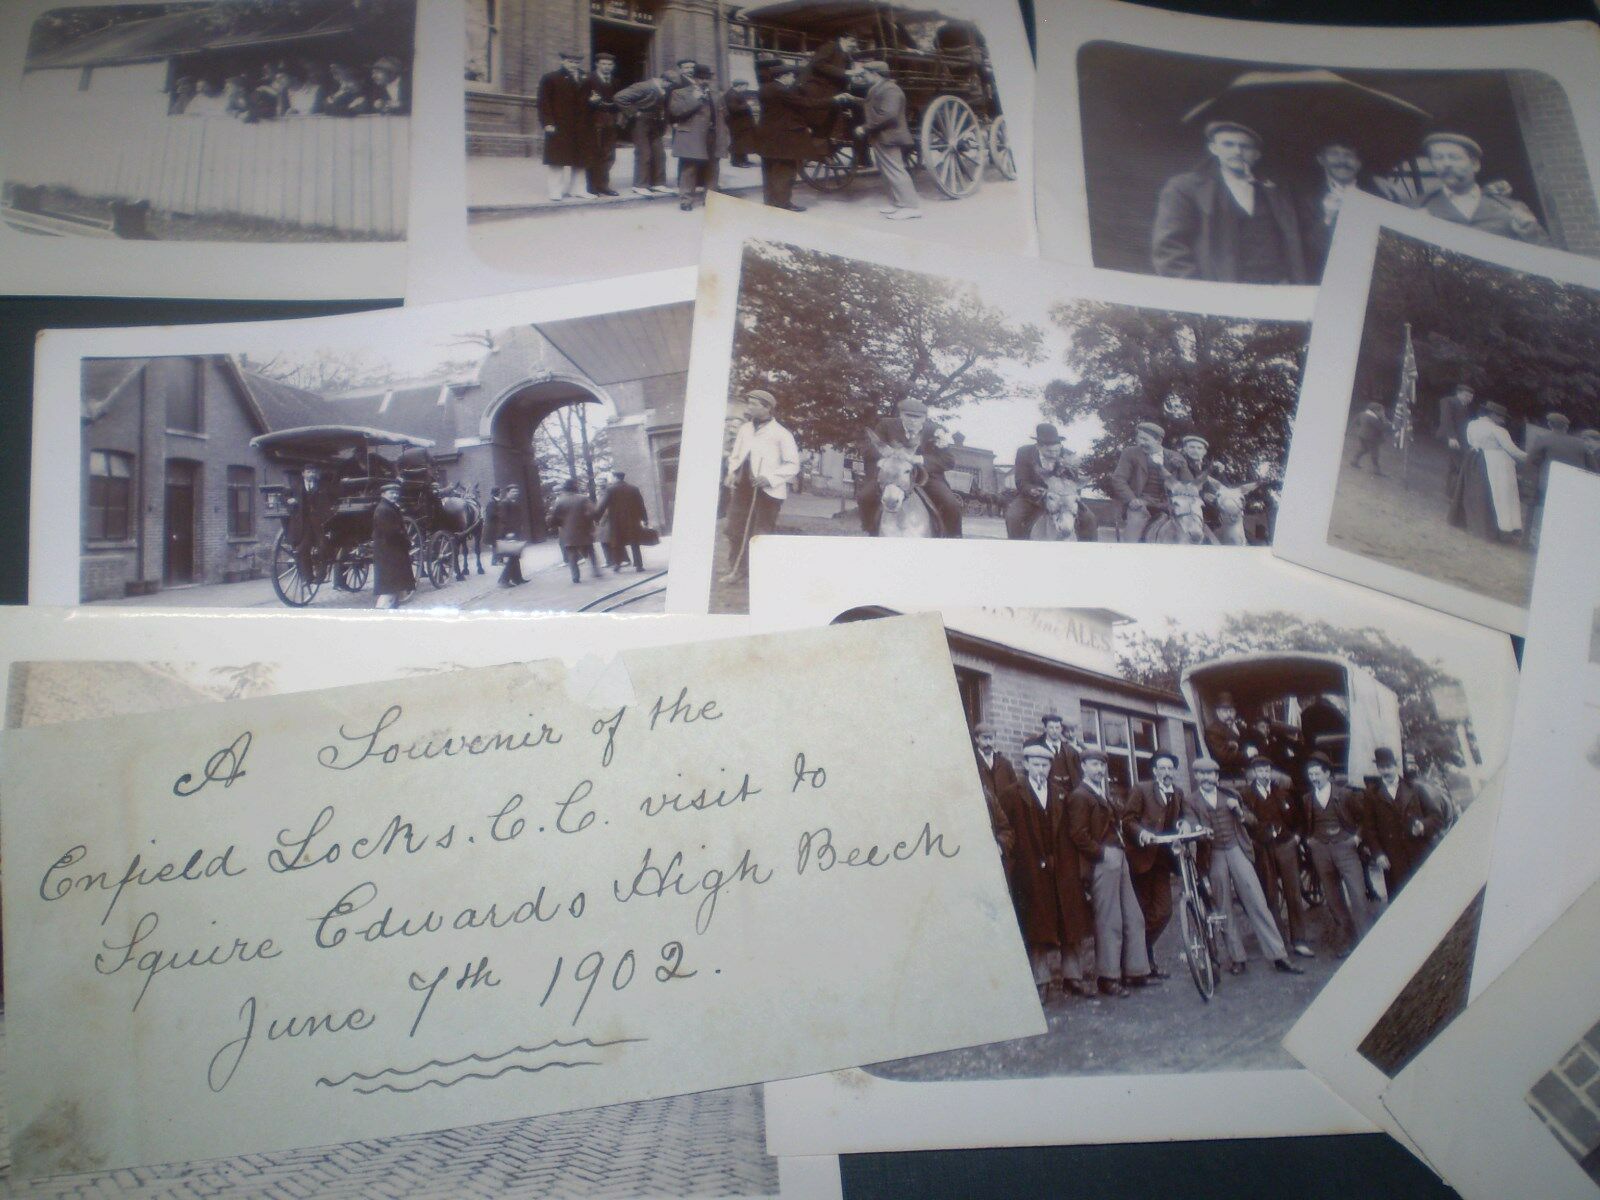 ALES
A Souvenir of the
Enfield Locks. C. C. visit to
Squire Edwards High Beech
June 7th 1902.